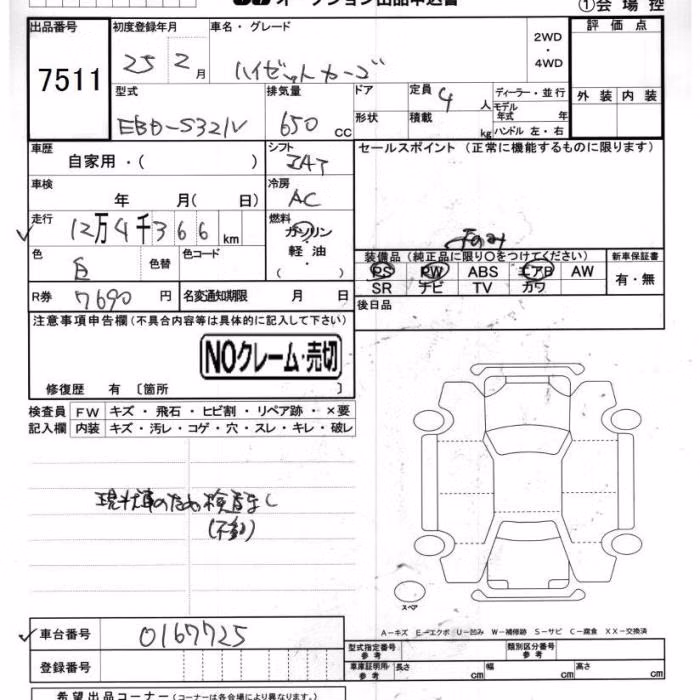 オークション出品申込書
①会場控
出品番号 初度登録年月 車名・グレード 評価点
7511 25 2月 ハイゼットカーゴ 2WD・4WD
外装 内装
型式 排気量 ドア 定員 4人 ディーラー・並行
モデル年式 年
EBD-S321V 650cc 形状 積載 kg ハンドル 左・右
車歴 シフト セールスポイント (正常に機能するものに限ります)
自家用・( ) IAT
車検 冷房
年 月( 日) AC
走行 燃料
12万4千366km ガソリン・軽油・( )
色 色替 色コード
装備品 (純正品に限り○をつけてください) 新車保証書
PS PW ABS エアB AW 有・無
SR ナビ TV カワ
R券 7690円 名変通知期限 月 日 後日品
注意事項申告欄 (不具合内容等は具体的に記入して下さい)
NOクレーム・売切
修復歴 有 〔箇所 〕
検査員 FW キズ・飛石・ヒビ割・リペア跡・×要
記入欄 内装 キズ・汚レ・コゲ・穴・スレ・キレ・破レ
現状車のため検査なし
(不動)
スペア
A-キズ E-エクボ U-凹み W-補修跡 S-サビ C-腐食 XX-交換済
車台番号 0167725
型式指定番号 参考 類別区分番号 参考
登録番号
車庫証明用・参考 長さ cm 幅 cm 高さ cm
希望出品コーナー (コーナーは各会場により異なります。)